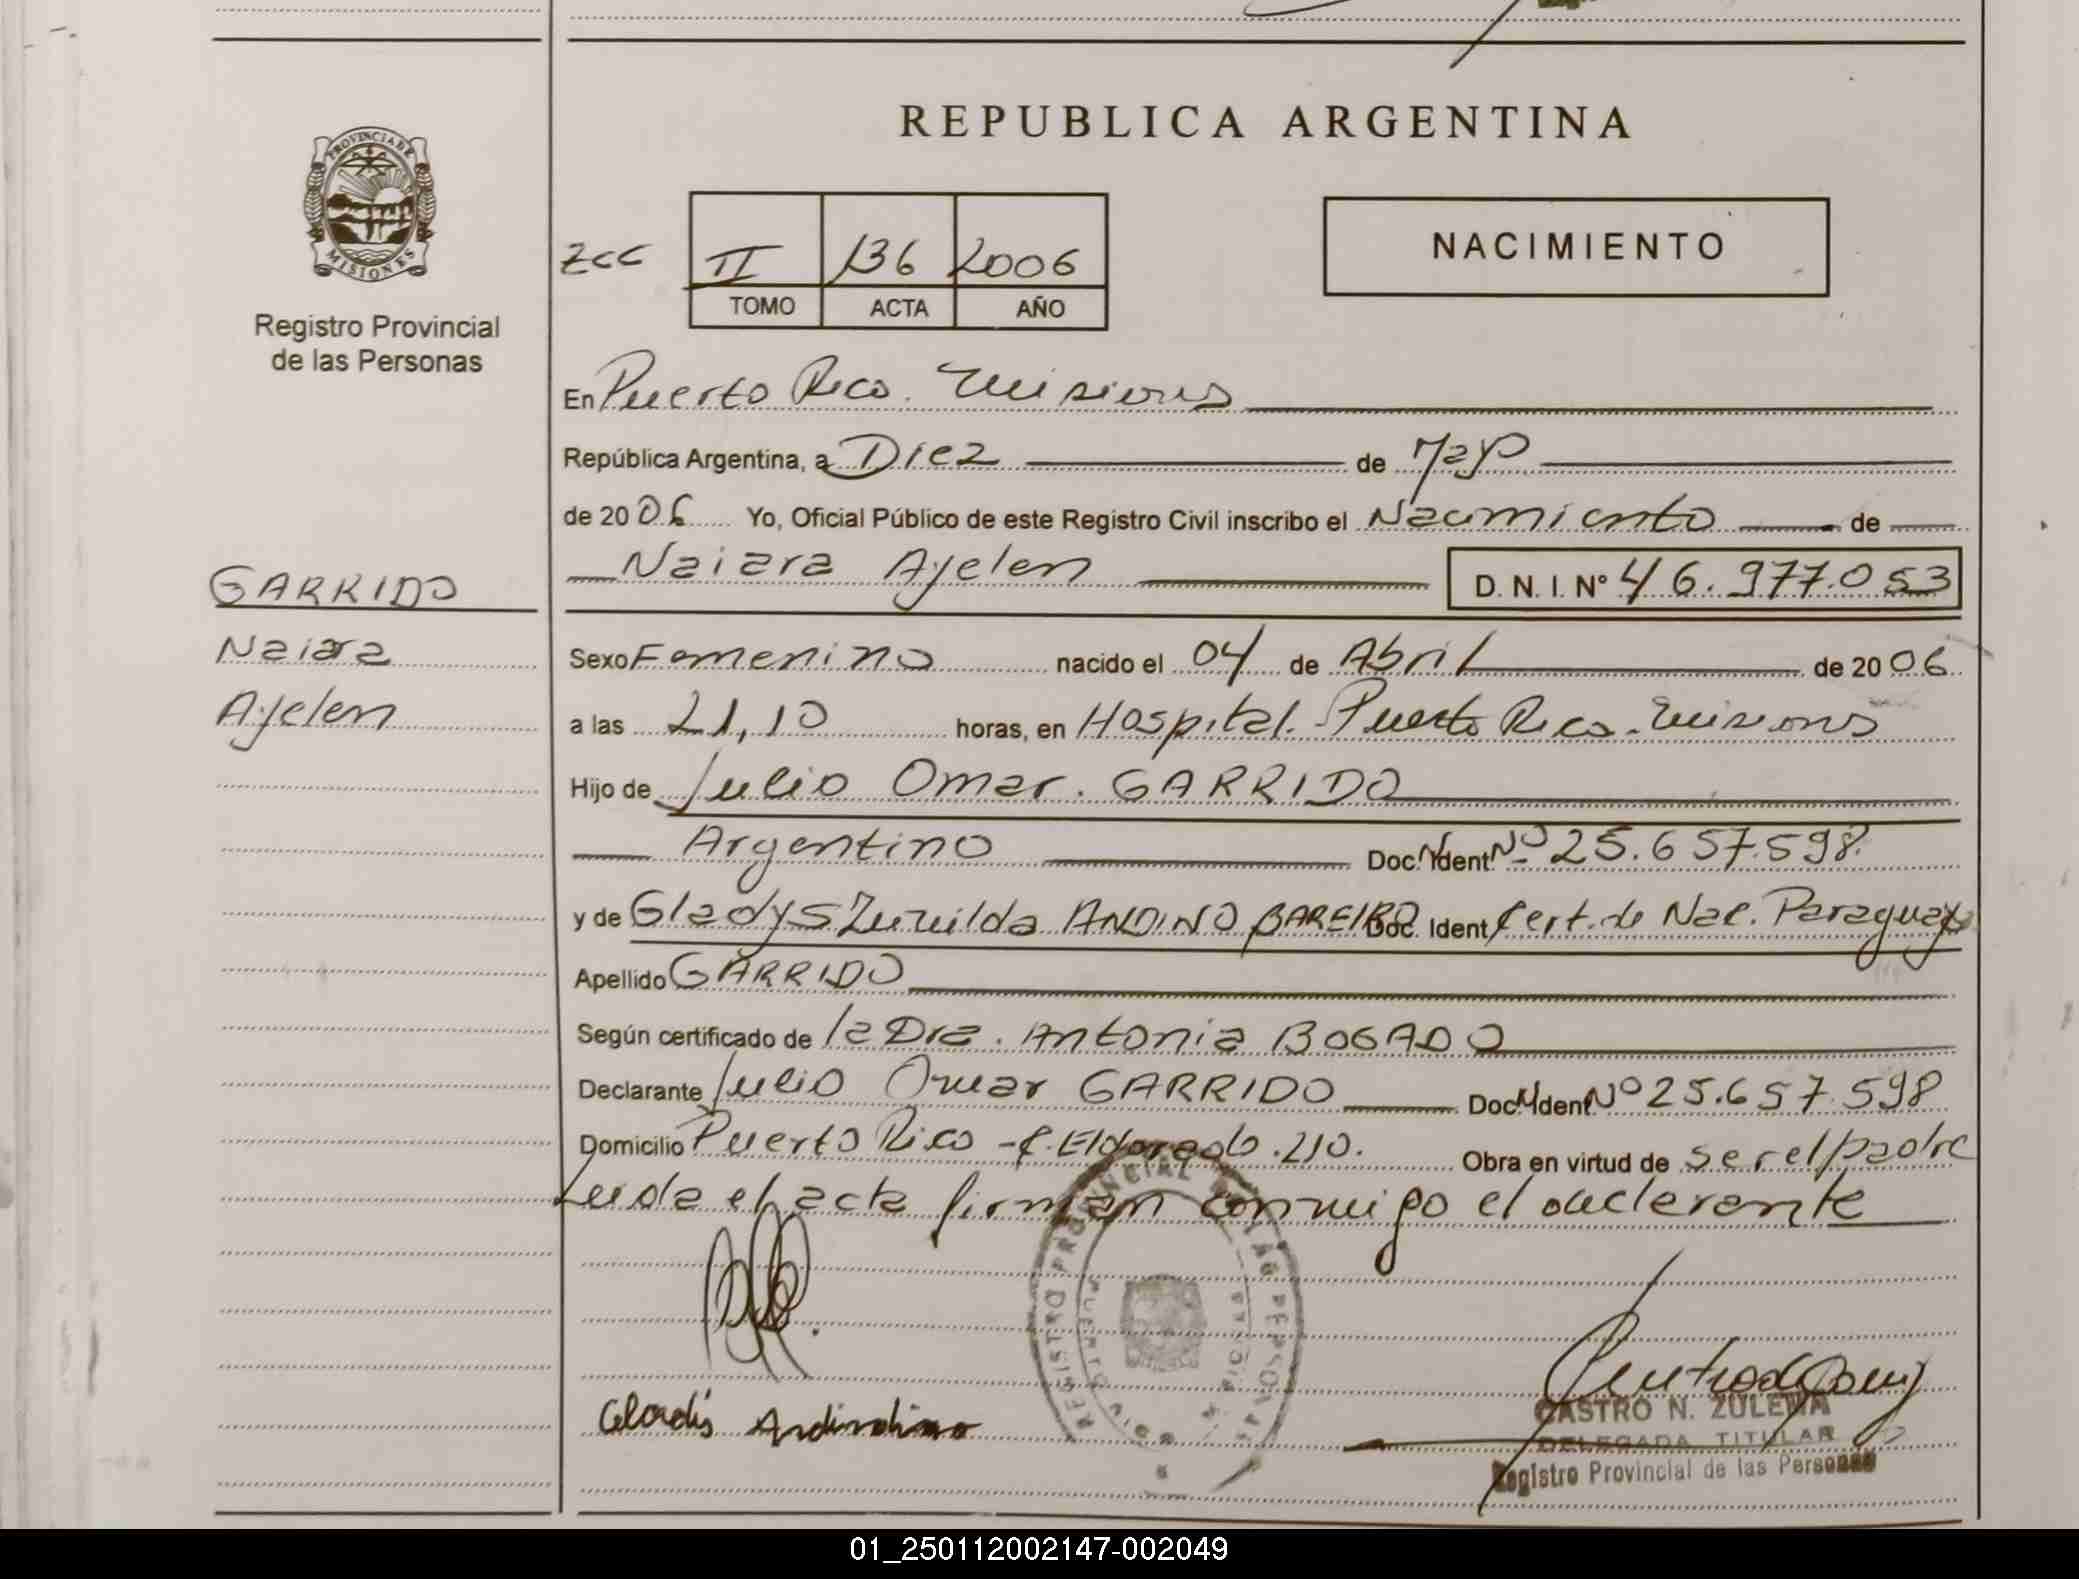 REPUBLICA ARGENTINA
PROVINCIA DE
MISIONES
Registro Provincial
de las Personas
zcc II 136 2006
TOMO ACTA AÑO
NACIMIENTO
En Puerto Rico. Misiones
República Argentina, a Diez de Mayo
de 2006 Yo, Oficial Público de este Registro Civil inscribo el Nacimiento de
Naiara Ayelen D. N. I. Nº 46.977.053
GARRIDO
Naiara
Ayelen
Sexo Femenino nacido el 04 de Abril de 2006
a las 21,10 horas, en Hospital. Puerto Rico. Misiones
Hijo de Julio Omar. GARRIDO
Argentino Doc. Ident. Nº 25.657.598.
y de Gladys Zunilda ANDINO BAREIRO Doc. Ident Cert. de Nac. Paraguay
Apellido GARRIDO
Según certificado de la Dra. Antonia BOGADO
Declarante Julio Omar GARRIDO Doc. Ident Nº 25.657.598
Domicilio Puerto Rico - C. Eldorado. 210. Obra en virtud de ser el padre
Leida el acta firman conmigo el declarante
REGISTRO PROVINCIAL DE LAS PERSONAS
PUERTO RICO
Gladis
CASTRO N. ZULEMA
DELEGADA TITULAR
Registro Provincial de las Personas
01_250112002147-002049